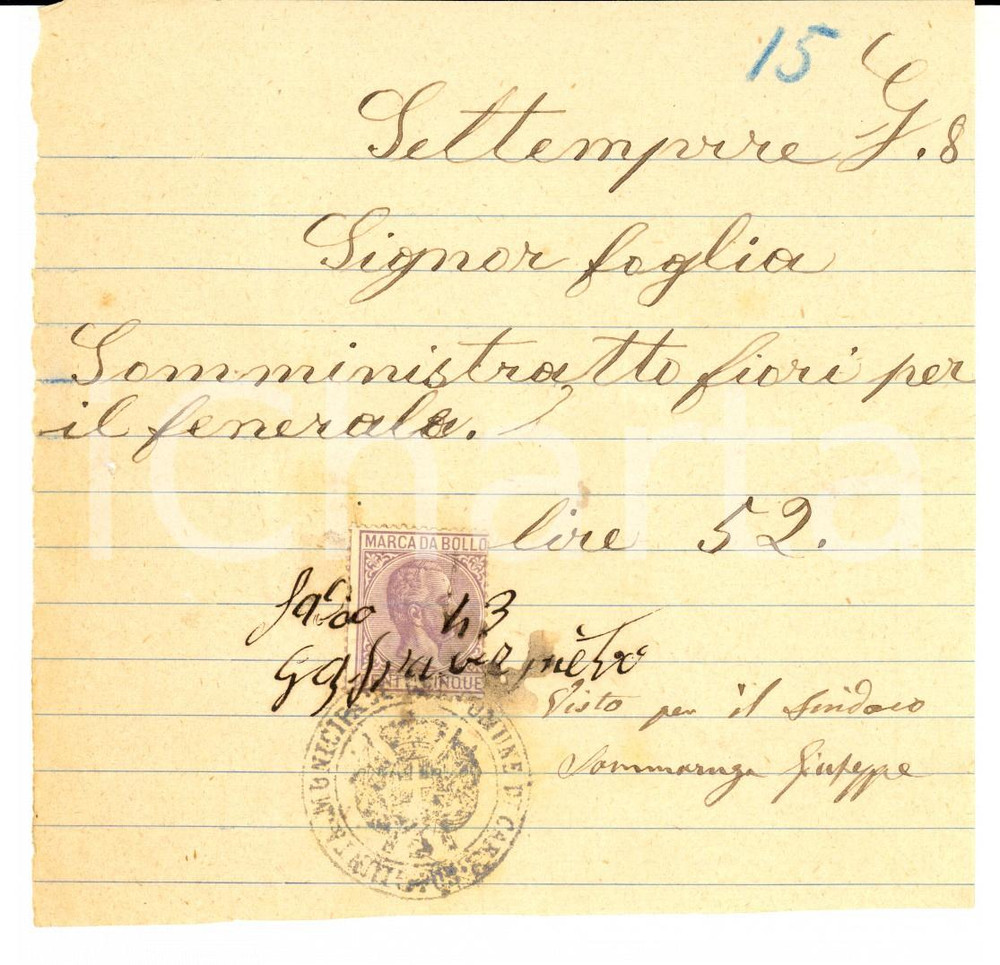 15
Settempvre G. 8
Signor foglia
Somministratto fiori per
il fenerale.
lire 52.
MARCA DA BOLLO
43
CINQUE
Visto per il Sindaco
Sommaruga Giuseppe
GIUNTA MUNICIPALE COMUNE DI
iCharta